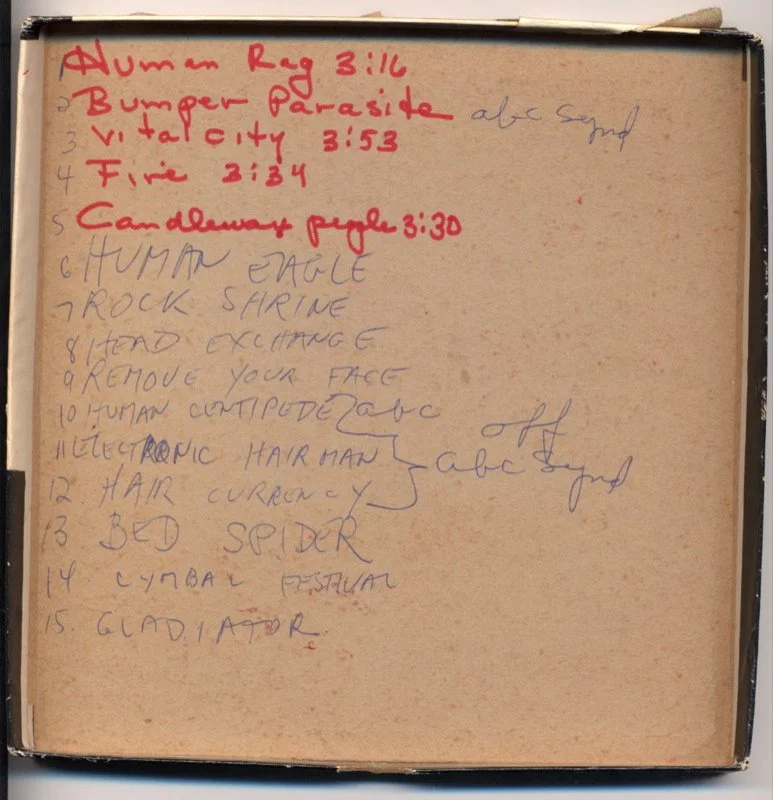 1 Human Rag 3:16
2 Bumper Parasite abc Synd
3 Vital city 3:53
4 Fire 3:34
5 Candlewax people 3:30
6 HUMAN EAGLE
7 ROCK SHRINE
8 HEAD EXCHANGE
9 REMOVE YOUR FACE
10 HUMAN CENTIPEDE abc off
11 ELECTRONIC HAIRMAN abc Synd
12. HAIR CURRENCY
13 BED SPIDER
14 CYMBAL FESTIVAL
15. GLADIATOR